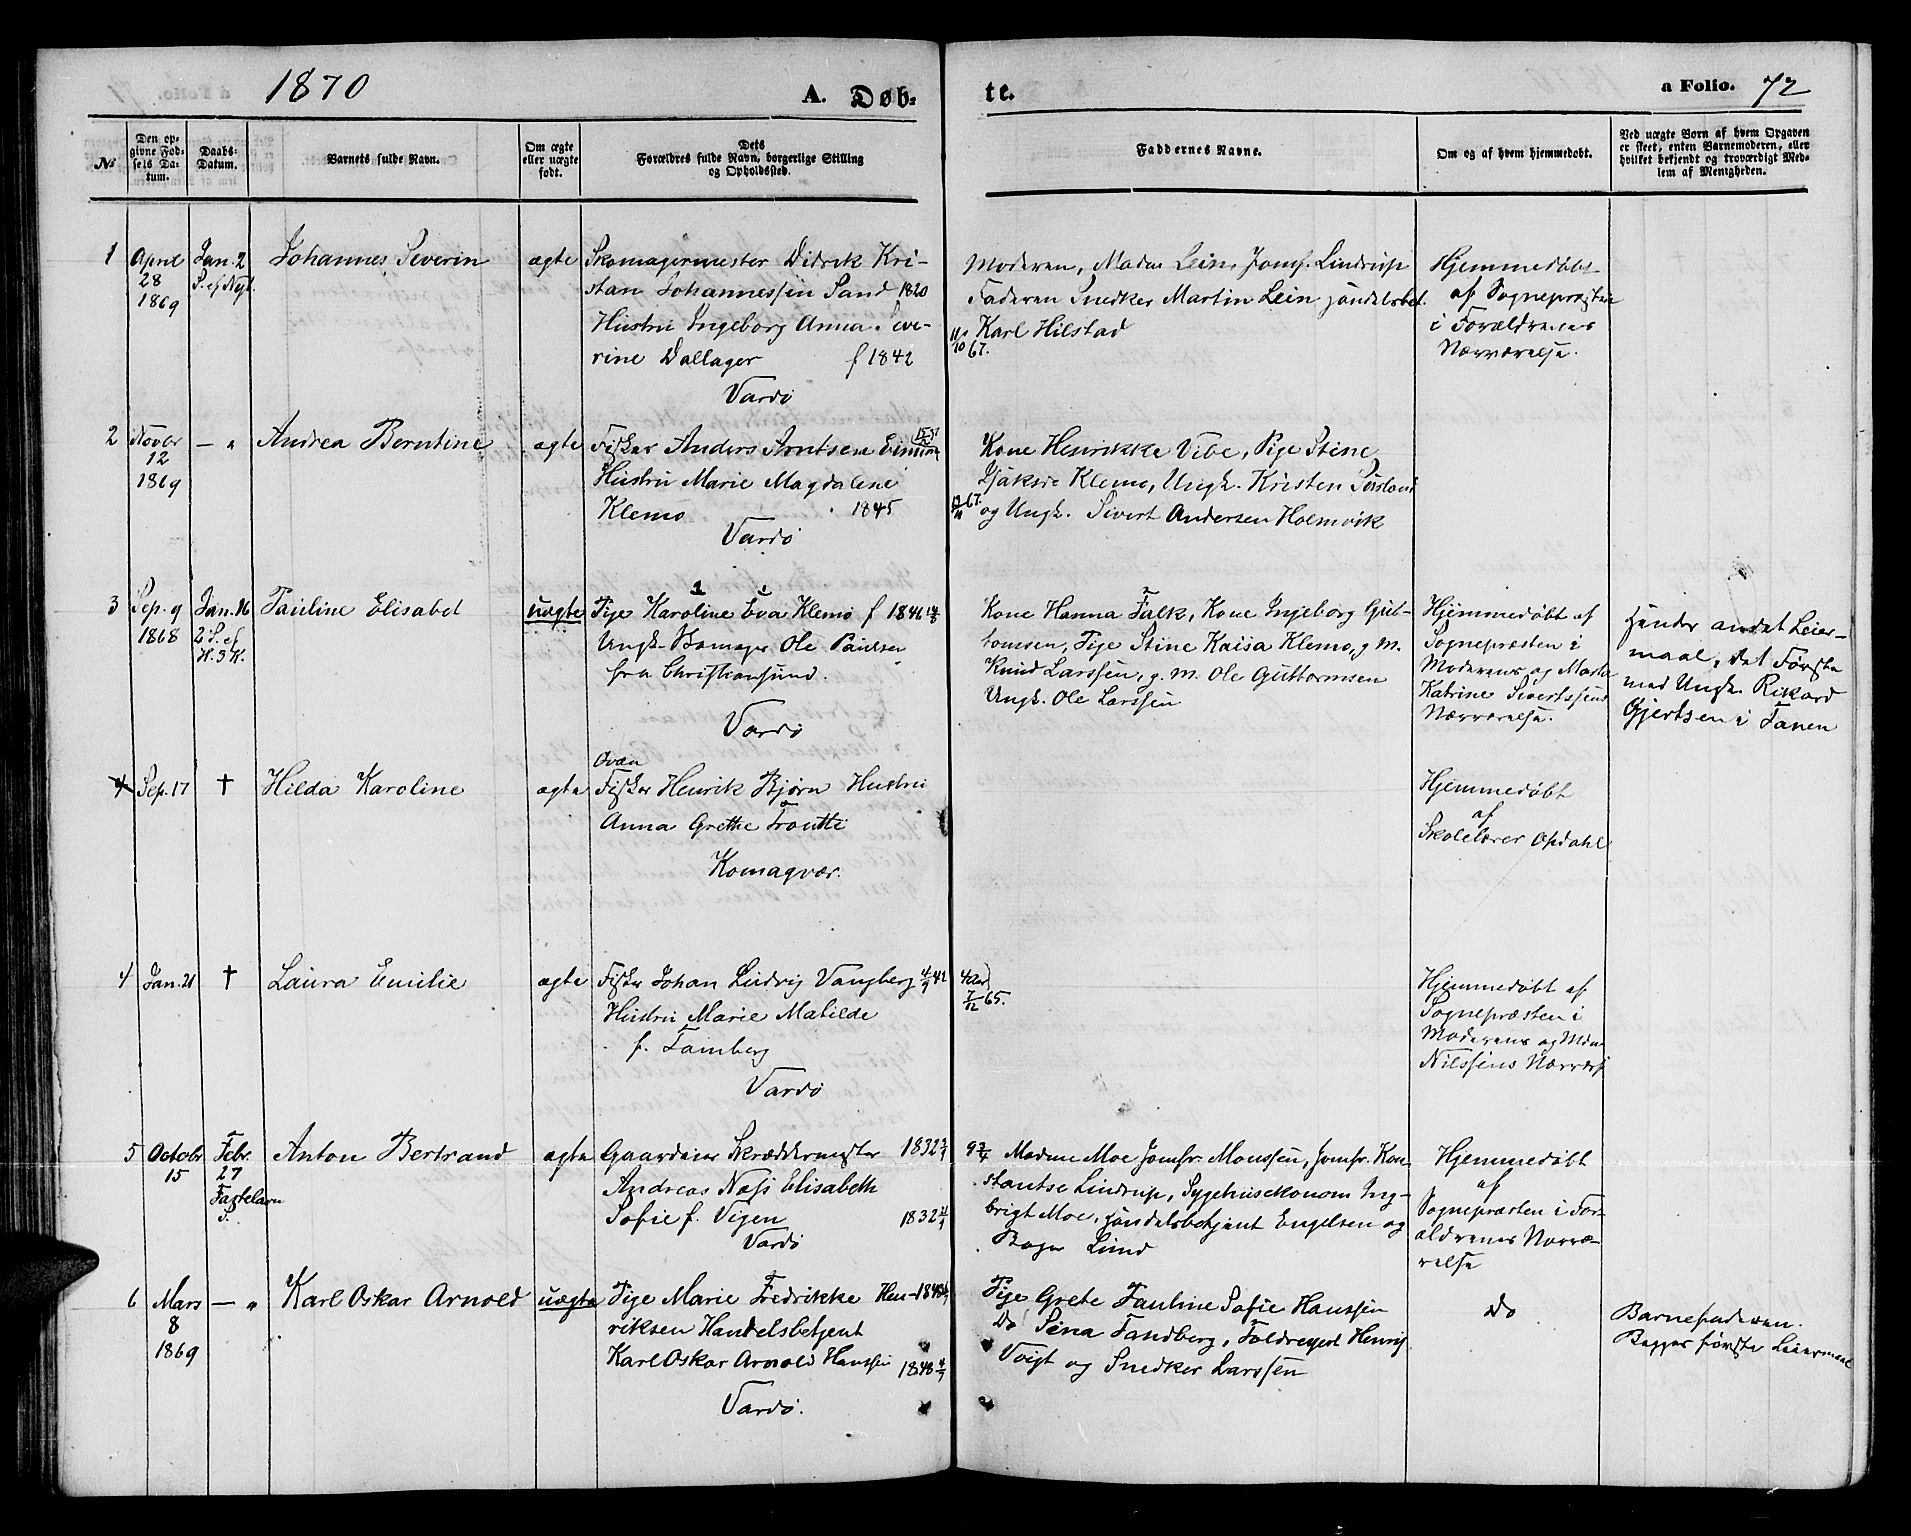 1870
A. Døb-
te.
a Folio. 72
No
Den op-
givne Fød-
sels Da-
tum.
Daabs-
Datum.
Barnets fulde Navn.
Om ægte
eller uægte
født.
Dets
Forældres fulde Navn, borgerlige Stilling
og Opholdssted.
Faddernes Navne.
Om og af hvem hjemmedøbt.
Ved uægte Børn af hvem Opgaven
er skeet, enten Barnemoderen, eller
hvilket bekjendt og troværdigt Med-
lem af Menigheden.
1
April
28
1869
Jan. 2
S. ef Nyt.
Johannes Severin
ægte
Skomagermester Didrik Kri-
stan Johannessen Sand 1820
Hustru Ingeborg Anna Seve-
rine Dallager f 1842
Vardø
11/10 67.
Moderen, Madm Lein, Jomf. Lindrup
Faderen Snedker Martin Lein
Karl Hilstad
Hjemmedøbt
af Sognepræsten
i Forældrenes
Nærværelse.
2
Novbr
12
1869
— "
Andrea Berntine
ægte
Fisker Anders Arntsen
Hustru Marie Magdalene
Klemo 1845
Vardø
67.
Kone Henrikke Vibe, Pige Stine
Klemo, Ungk. Kristen
og Ungk. Sivert Andersen Holmvik
3
Sep. 9
1868
Jan. 16
2 S. ef
H. 3 K.
Pauline Elisabet
uægte
Pige Karoline Eva Klemo f 1846
Ungk. Skomager Ole Paulsen
fra Christiansund.
Vardø
Kone Hanna Falk, Kone Ingeborg Gut-
tomsen, Pige Stine Kaisa Klemo, g M.
Knud Larssen, g. M. Ole Guttormsen
Ungk. Ole Larssen
Hjemmedøbt af
Sognepræsten i
Moderens og Marte
Katrine Sivertssens
Nærværelse.
Hendes andet Leier-
maal, det Første
med Ungk. Rikard
Gjertsen i Tanen
4
Sep. 17
†
Hilda Karoline
ægte
Ovæn
Fisker Henrik Bjørn Hustru
Anna Grethe Troutti
Komagvær.
Hjemmedøbt
af
Skolelærer Opdahl
4
Jan. 21
†
Laura Emilie
ægte
Fisker Johan Ludvig Vangberg 4/9 42
Hustru Marie Matilde
f. Tamberg
Vardø
7/12 65.
Hjemmedøbt af
Sognepræsten i
Moderens og Mdm
Nilssens Nærvær
5
Octobr
15
Febr.
27
Fastelavn
S.
Anton Bertrand
ægte
Gaardeier Skræddermester 1832
Andreas Næss Elisabeth
Sofie f. Vigen 1832
Vardø
Madme Moe Jomfr. Monssen, Jomfr. Kon-
stantse Lindrup, Sygehusøkonom Ing-
brigt Moe, Handelsbetjent Engelsen og
Bager Lund
Hjemmedøbt
af
Sognepræsten i For-
ældrenes Nærvæ-
relse
6
Mars
8
1869
— "
Karl Oskar Arnold
uægte
Pige Marie Fredrikke Hen-
riksen Handelsbetjent
Karl Oskar Arnold Hanssen 1848
Vardø.
Pige Grete Pauline Sofie Hanssen
Do Sina Tandberg, Henrij
Voigt og Snedker Larssen
Do
Barnefaderen.
Begges første Leiermaal